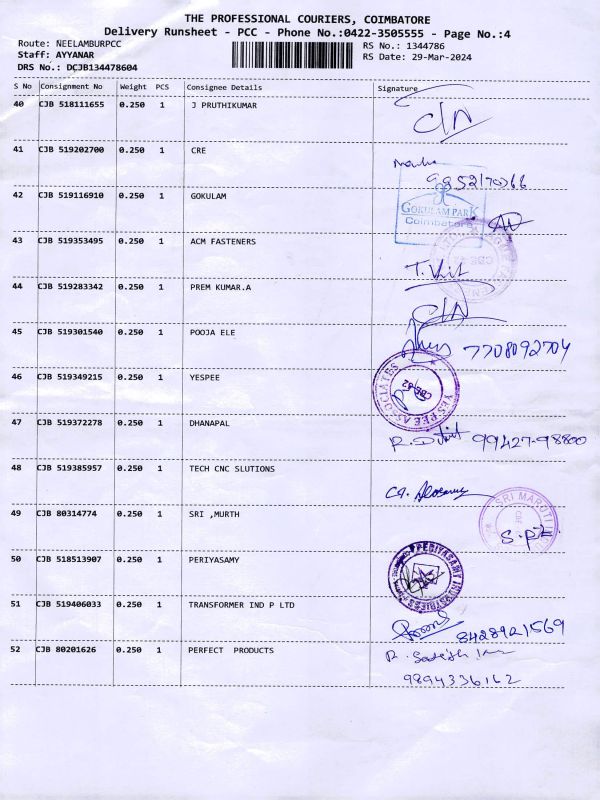 THE PROFESSIONAL COURIERS, COIMBATORE
Delivery Runsheet - PCC - Phone No.:0422-3505555 - Page No.:4
Route: NEELAMBURPCC
RS No.: 1344786
Staff: AYYANAR
RS Date: 29-Mar-2024
DRS No.: DCJB134478604
S No Consignment No Weight PCS Consignee Details Signature
40 CJB 518111655 0.250 1 J PRUTHIKUMAR
41 CJB 519202700 0.250 1 CRE
42 CJB 519116910 0.250 1 GOKULAM
GOKULAM PARK
Coimbatore
43 CJB 519353495 0.250 1 ACM FASTENERS
44 CJB 519283342 0.250 1 PREM KUMAR.A
45 CJB 519301540 0.250 1 POOJA ELE
7708092704
46 CJB 519349215 0.250 1 YESPEE
YES PEE ASSOCIATES
CBE-62
47 CJB 519372278 0.250 1 DHANAPAL
99427-98800
48 CJB 519385957 0.250 1 TECH CNC SLUTIONS
49 CJB 80314774 0.250 1 SRI ,MURTH
SRI MARUTI
50 CJB 518513907 0.250 1 PERIYASAMY
PERIYASAMY INDUSTRIES
51 CJB 519406033 0.250 1 TRANSFORMER IND P LTD
8428921569
52 CJB 80201626 0.250 1 PERFECT PRODUCTS
9894336162